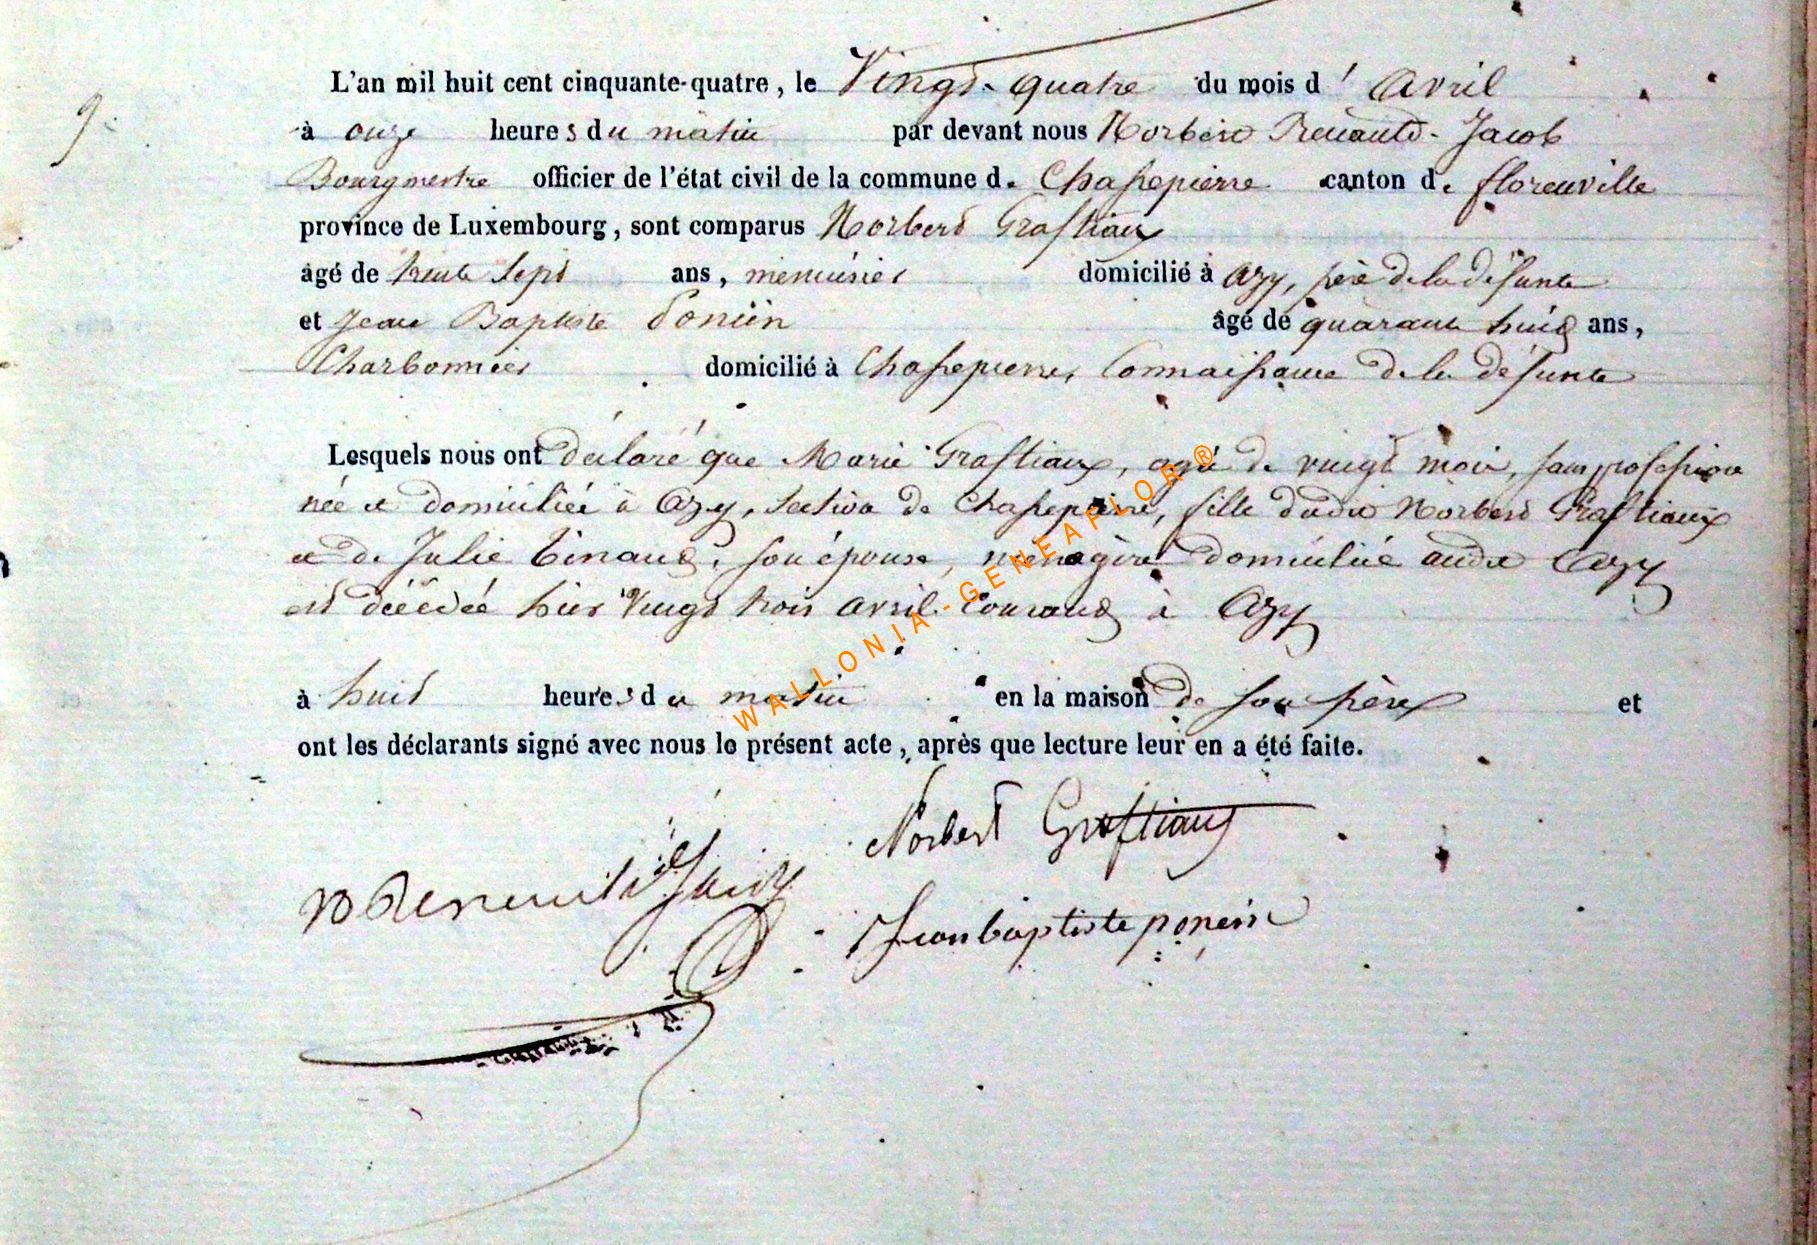 9.
L'an mil huit cent cinquante-quatre, le Vingt-quatre du mois d' Avril
à onze heures du matin par devant nous Norbert Renauld-Jacob
Bourgmestre officier de l'état civil de la commune de Chassepierre canton de florenville
province de Luxembourg, sont comparus Norbert Grastiaux
âgé de trente sept ans, menuisier domicilié à Azy, père de la défunte
et Jean Baptiste Poncin âgé de quarante huit ans,
Charbonnier domicilié à Chassepierre, Connaissance de la défunte
Lesquels nous ont déclaré que Marie Grastiaux, agé de vingt mois, sans profession
née et domiciliée à Azy, section de Chassepierre, fille dudit Norbert Grastiaux
et de Julie Tinant, son épouse, ménagère domiciliée audit Azy
est décédée hier Vingt trois avril Courant à Azy
à huit heures du matin en la maison de son père et
ont les déclarants signé avec nous le présent acte, après que lecture leur en a été faite.
Norbert Grastiaux
Jean baptiste poncin
WALLONIA-GENEAPLOR®